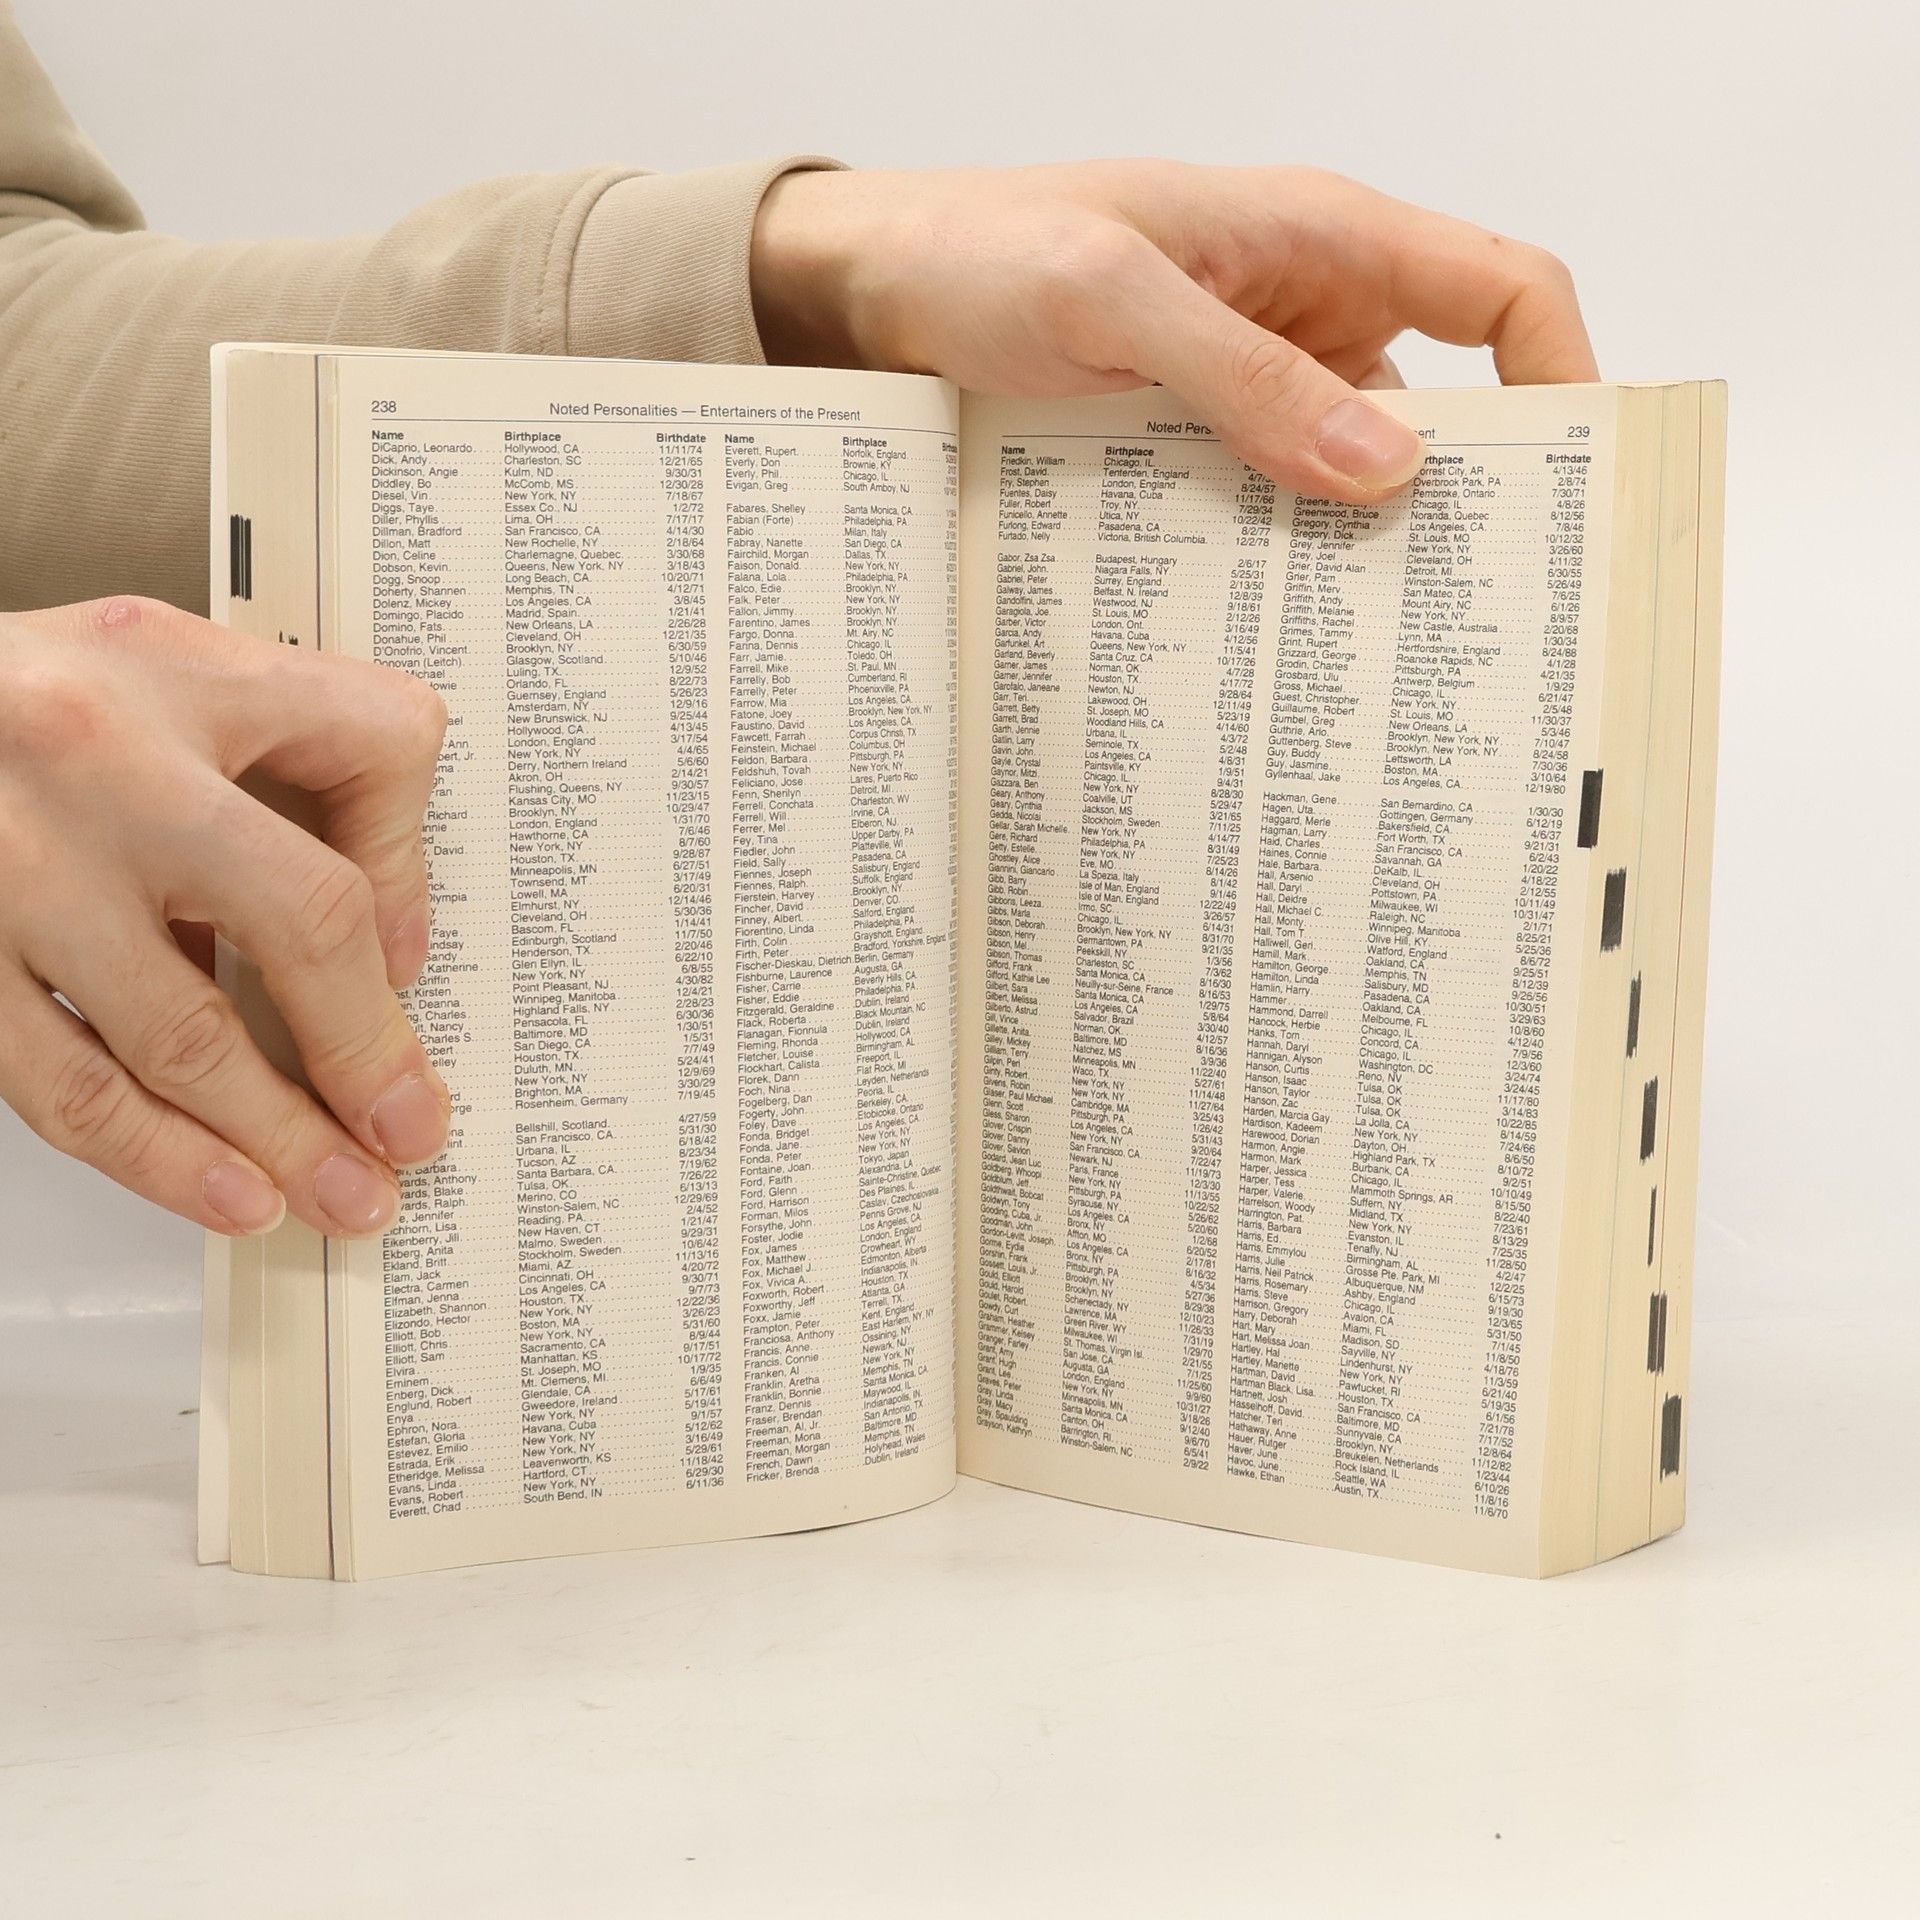 238
Noted Personalities — Entertainers of the Present
Name Birthplace Birthdate
DiCaprio, Leonardo Hollywood, CA 11/11/74
Dick, Andy Charleston, SC 12/21/65
Dickinson, Angie Kulm, ND 9/30/31
Diddley, Bo McComb, MS 12/30/28
Diesel, Vin New York, NY 7/18/67
Diggs, Taye Essex Co., NJ 1/2/72
Diller, Phyllis Lima, OH 7/17/17
Dillman, Bradford San Francisco, CA 4/14/30
Dillon, Matt New Rochelle, NY 2/18/64
Dion, Celine Charlemagne, Quebec 3/30/68
Dobson, Kevin Queens, New York, NY 3/18/43
Dogg, Snoop Long Beach, CA 10/20/71
Doherty, Shannen Memphis, TN 4/12/71
Dolenz, Mickey Los Angeles, CA 3/8/45
Domingo, Placido Madrid, Spain 1/21/41
Domino, Fats New Orleans, LA 2/26/28
Donahue, Phil Cleveland, OH 12/21/35
D'Onofrio, Vincent Brooklyn, NY 6/30/59
Donovan (Leitch) Glasgow, Scotland 5/10/46
Michael Luling, TX 12/9/52
Orlando, FL 8/22/73
Guernsey, England 5/26/23
Amsterdam, NY 12/9/16
New Brunswick, NJ 9/25/44
Hollywood, CA 4/13/45
London, England 3/17/54
New York, NY 4/4/65
Derry, Northern Ireland 5/6/60
Akron, OH 2/14/21
Flushing, Queens, NY 9/30/57
Kansas City, MO 11/23/15
Richard Brooklyn, NY 10/29/47
London, England 1/31/70
Hawthorne, CA 7/6/46
David New York, NY 8/7/60
Houston, TX 9/28/87
Minneapolis, MN 6/27/51
Townsend, MT 3/17/49
Olympia Lowell, MA 6/20/31
Elmhurst, NY 12/14/46
Cleveland, OH 5/30/36
Faye Bascom, FL 1/14/41
Edinburgh, Scotland 11/7/50
Sandy Henderson, TX 2/20/46
Katherine Glen Ellyn, IL 6/22/10
Griffin New York, NY 6/8/55
Kirsten Point Pleasant, NJ 4/30/82
Deanna Winnipeg, Manitoba 12/4/21
Charles Highland Falls, NY 2/28/23
Nancy Pensacola, FL 6/30/36
Charles S. Baltimore, MD 1/30/51
San Diego, CA 1/5/31
Houston, TX 7/7/49
Duluth, MN 5/24/41
New York, NY 12/9/69
Brighton, MA 3/30/29
Rosenheim, Germany 7/19/45
Bellshill, Scotland 4/27/59
San Francisco, CA 5/31/30
Urbana, IL 6/18/42
Barbara Tucson, AZ 8/23/34
Anthony Santa Barbara, CA 7/19/62
Blake Tulsa, OK 7/26/22
Ralph Merino, CO 6/13/13
Jennifer Winston-Salem, NC 12/29/69
Eichhorn, Lisa Reading, PA 2/4/52
Eikenberry, Jill New Haven, CT 1/21/47
Ekberg, Anita Malmo, Sweden 9/29/31
Ekland, Britt Stockholm, Sweden 10/6/42
Elam, Jack Miami, AZ 11/13/16
Electra, Carmen Cincinnati, OH 4/20/72
Elfman, Jenna Los Angeles, CA 9/30/71
Elizabeth, Shannon Houston, TX 9/7/73
Elizondo, Hector New York, NY 12/22/36
Elliott, Bob Boston, MA 3/26/23
Elliott, Chris New York, NY 5/31/60
Elliott, Sam Sacramento, CA 8/9/44
Elvira Manhattan, KS 9/17/51
Eminem St. Joseph, MO 10/17/72
Enberg, Dick Mt. Clemens, MI 1/9/35
Englund, Robert Glendale, CA 6/6/49
Enya Gweedore, Ireland 5/17/61
Ephron, Nora New York, NY 5/19/41
Estefan, Gloria Havana, Cuba 9/1/57
Estevez, Emilio New York, NY 5/12/62
Estrada, Erik New York, NY 3/16/49
Etheridge, Melissa Leavenworth, KS 5/29/61
Evans, Linda Hartford, CT 11/18/42
Evans, Robert New York, NY 6/29/30
Everett, Chad South Bend, IN 6/11/36
Name Birthplace
Everett, Rupert Norfolk, England
Everly, Don Brownie, KY
Everly, Phil Chicago, IL
Evigan, Greg South Amboy, NJ
Fabares, Shelley Santa Monica, CA
Fabian (Forte) Philadelphia, PA
Fabio Milan, Italy
Fabray, Nanette San Diego, CA
Fairchild, Morgan Dallas, TX
Faison, Donald New York, NY
Falana, Lola Philadelphia, PA
Falco, Edie Brooklyn, NY
Falk, Peter New York, NY
Fallon, Jimmy Brooklyn, NY
Farentino, James Brooklyn, NY
Fargo, Donna Mt. Airy, NC
Farina, Dennis Chicago, IL
Farr, Jamie Toledo, OH
Farrell, Mike St. Paul, MN
Farrelly, Bob Cumberland, RI
Farrelly, Peter Phoenixville, PA
Farrow, Mia Los Angeles, CA
Fatone, Joey Brooklyn, New York, NY
Faustino, David Los Angeles, CA
Fawcett, Farrah Corpus Christi, TX
Feinstein, Michael Columbus, OH
Feldon, Barbara Pittsburgh, PA
Feldshuh, Tovah New York, NY
Feliciano, Jose Lares, Puerto Rico
Fenn, Sherilyn Detroit, MI
Ferrell, Conchata Charleston, WV
Ferrell, Will Irvine, CA
Ferrer, Mel Elberon, NJ
Fey, Tina Upper Darby, PA
Fiedler, John Platteville, WI
Field, Sally Pasadena, CA
Fiennes, Joseph Salisbury, England
Fiennes, Ralph Suffolk, England
Fierstein, Harvey Brooklyn, NY
Fincher, David Denver, CO
Finney, Albert Salford, England
Fiorentino, Linda Philadelphia, PA
Firth, Colin Grayshott, England
Firth, Peter Bradford, Yorkshire, England
Fischer-Dieskau, Dietrich Berlin, Germany
Fishburne, Laurence Augusta, GA
Fisher, Carrie Beverly Hills, CA
Fisher, Eddie Philadelphia, PA
Fitzgerald, Geraldine Dublin, Ireland
Flack, Roberta Black Mountain, NC
Flanagan, Fionnula Dublin, Ireland
Fleming, Rhonda Hollywood, CA
Fletcher, Louise Birmingham, AL
Flockhart, Calista Freeport, IL
Florek, Dann Flat Rock, MI
Foch, Nina Leyden, Netherlands
Fogelberg, Dan Peoria, IL
Fogerty, John Berkeley, CA
Foley, Dave Etobicoke, Ontario
Fonda, Bridget Los Angeles, CA
Fonda, Jane New York, NY
Fonda, Peter New York, NY
Fontaine, Joan Tokyo, Japan
Ford, Faith Alexandria, LA
Ford, Glenn Sainte-Christine, Quebec
Ford, Harrison Des Plaines, IL
Forman, Milos Caslav, Czechoslovakia
Forsythe, John Penns Grove, NJ
Foster, Jodie Los Angeles, CA
Fox, James London, England
Fox, Matthew Crowheart, WY
Fox, Michael J. Edmonton, Alberta
Fox, Vivica A. Indianapolis, IN
Foxworth, Robert Houston, TX
Foxworthy, Jeff Atlanta, GA
Foxx, Jamie Terrell, TX
Frampton, Peter Kent, England
Franciosa, Anthony East Harlem, NY, NY
Francis, Anne Ossining, NY
Francis, Connie Newark, NJ
Franken, Al New York, NY
Franklin, Aretha Memphis, TN
Franklin, Bonnie Santa Monica, CA
Franz, Dennis Maywood, IL
Fraser, Brendan Indianapolis, IN
Freeman, Al, Jr. San Antonio, TX
Freeman, Mona Baltimore, MD
Freeman, Morgan Memphis, TN
French, Dawn Holyhead, Wales
Fricker, Brenda Dublin, Ireland
239
Name Birthplace
Friedkin, William Chicago, IL
Frost, David Tenterden, England
Fry, Stephen London, England 8/24/57
Fuentes, Daisy Havana, Cuba 11/17/66
Fuller, Robert Troy, NY 7/29/34
Funicello, Annette Utica, NY 10/22/42
Furlong, Edward Pasadena, CA 8/2/77
Furtado, Nelly Victoria, British Columbia 12/2/78
Gabor, Zsa Zsa Budapest, Hungary 2/6/17
Gabriel, John Niagara Falls, NY 5/25/31
Gabriel, Peter Surrey, England 2/13/50
Galway, James Belfast, N. Ireland 12/8/39
Gandolfini, James Westwood, NJ 9/18/61
Garagiola, Joe St. Louis, MO 2/12/26
Garber, Victor London, Ont. 3/16/49
Garcia, Andy Havana, Cuba 4/12/56
Garfunkel, Art Queens, New York, NY 11/5/41
Garland, Beverly Santa Cruz, CA 10/17/26
Garner, James Norman, OK 4/7/28
Garner, Jennifer Houston, TX 4/17/72
Garofalo, Janeane Newton, NJ 9/28/64
Garr, Teri Lakewood, OH 12/11/49
Garrett, Betty St. Joseph, MO 5/23/19
Garrett, Brad Woodland Hills, CA 4/14/60
Garth, Jennie Urbana, IL 4/3/72
Gatlin, Larry Seminole, TX 5/2/48
Gavin, John Los Angeles, CA 4/8/31
Gayle, Crystal Paintsville, KY 1/9/51
Gaynor, Mitzi Chicago, IL 9/4/31
Gazzara, Ben New York, NY 8/28/30
Geary, Anthony Coalville, UT 5/29/47
Geary, Cynthia Jackson, MS 3/21/65
Gedda, Nicolai Stockholm, Sweden 7/11/25
Gellar, Sarah Michelle New York, NY 4/14/77
Gere, Richard Philadelphia, PA 8/31/49
Getty, Estelle New York, NY 7/25/23
Ghostley, Alice Eve, MO 8/14/26
Giannini, Giancarlo La Spezia, Italy 8/1/42
Gibb, Barry Isle of Man, England 9/1/46
Gibb, Robin Isle of Man, England 12/22/49
Gibbons, Leeza Irmo, SC 3/26/57
Gibbs, Marla Chicago, IL 6/14/31
Gibson, Deborah Brooklyn, New York, NY 8/31/70
Gibson, Henry Germantown, PA 9/21/35
Gibson, Mel Peekskill, NY 1/3/56
Gibson, Thomas Charleston, SC 7/3/62
Gifford, Frank Santa Monica, CA 8/16/30
Gifford, Kathie Lee Neuilly-sur-Seine, France 8/16/53
Gilbert, Sara Santa Monica, CA 1/29/75
Gilbert, Melissa Los Angeles, CA 5/8/64
Gilberto, Astrud Salvador, Brazil 3/30/40
Gill, Vince Norman, OK 4/12/57
Gillette, Anita Baltimore, MD 8/16/36
Gilley, Mickey Natchez, MS 3/9/36
Gilliam, Terry Minneapolis, MN 11/22/40
Gilpin, Peri Waco, TX 5/27/61
Ginty, Robert New York, NY 11/14/48
Givens, Robin New York, NY 11/27/64
Glaser, Paul Michael Cambridge, MA 3/25/43
Glenn, Scott Pittsburgh, PA 1/26/42
Gless, Sharon Los Angeles, CA 5/31/43
Glover, Crispin New York, NY 9/20/64
Glover, Danny San Francisco, CA 7/22/47
Glover, Savion Newark, NJ 11/19/73
Godard, Jean Luc Paris, France 12/3/30
Goldberg, Whoopi New York, NY 11/13/55
Goldblum, Jeff Pittsburgh, PA 10/22/52
Goldthwait, Bobcat Syracuse, NY 5/26/62
Goldwyn, Tony Los Angeles, CA 5/20/60
Gooding, Cuba, Jr. Bronx, NY 1/2/68
Goodman, John Affton, MO 6/20/52
Gordon-Levitt, Joseph Los Angeles, CA 2/17/81
Gorme, Eydie Bronx, NY 8/16/32
Gorshin, Frank Pittsburgh, PA 4/5/34
Gossett, Louis, Jr. Brooklyn, NY 5/27/36
Gould, Elliott Brooklyn, NY 8/29/38
Gould, Harold Schenectady, NY 12/10/23
Goulet, Robert Lawrence, MA 11/26/33
Gowdy, Curt Green River, WY 7/31/19
Graham, Heather Milwaukee, WI 1/29/70
Grammer, Kelsey St. Thomas, Virgin Isl. 2/21/55
Granger, Farley San Jose, CA 7/1/25
Grant, Amy Augusta, GA 11/25/60
Grant, Hugh London, England 9/9/60
Grant, Lee New York, NY 10/31/27
Graves, Peter Minneapolis, MN 3/18/26
Gray, Linda Santa Monica, CA 9/12/40
Gray, Macy Canton, OH 9/6/70
Gray, Spaulding Barrington, RI 6/5/41
Grayson, Kathryn Winston-Salem, NC 2/9/22
Birthdate
Forrest City, AR 4/13/46
Overbrook Park, PA 2/8/74
Pembroke, Ontario 7/30/71
Chicago, IL 4/8/26
Greenwood, Bruce Noranda, Quebec 8/12/56
Gregory, Cynthia Los Angeles, CA 7/8/46
Gregory, Dick St. Louis, MO 10/12/32
Grey, Jennifer New York, NY 3/26/60
Grey, Joel Cleveland, OH 4/11/32
Grier, David Alan Detroit, MI 6/30/55
Grier, Pam Winston-Salem, NC 5/26/49
Griffin, Merv San Mateo, CA 7/6/25
Griffith, Andy Mount Airy, NC 6/1/26
Griffith, Melanie New York, NY 8/9/57
Griffiths, Rachel New Castle, Australia 2/20/68
Grimes, Tammy Lynn, MA 1/30/34
Grint, Rupert Hertfordshire, England 8/24/88
Grizzard, George Roanoke Rapids, NC 4/1/28
Grodin, Charles Pittsburgh, PA 4/21/35
Grosbard, Ulu Antwerp, Belgium 1/9/29
Gross, Michael Chicago, IL 6/21/47
Guest, Christopher New York, NY 2/5/48
Guillaume, Robert St. Louis, MO 11/30/37
Gumbel, Greg New Orleans, LA 5/3/46
Guthrie, Arlo Brooklyn, New York, NY 7/10/47
Guttenberg, Steve Brooklyn, New York, NY 8/24/58
Guy, Buddy Lettsworth, LA 7/30/36
Guy, Jasmine Boston, MA 3/10/64
Gyllenhaal, Jake Los Angeles, CA 12/19/80
Hackman, Gene San Bernardino, CA 1/30/30
Hagen, Uta Gottingen, Germany 6/12/19
Haggard, Merle Bakersfield, CA 4/6/37
Hagman, Larry Fort Worth, TX 9/21/31
Haid, Charles San Francisco, CA 6/2/43
Haines, Connie Savannah, GA 1/20/22
Hale, Barbara DeKalb, IL 4/18/22
Hall, Arsenio Cleveland, OH 2/12/55
Hall, Daryl Pottstown, PA 10/11/49
Hall, Deidre Milwaukee, WI 10/31/47
Hall, Michael C. Raleigh, NC 2/1/71
Hall, Monty Winnipeg, Manitoba 8/25/21
Hall, Tom T. Olive Hill, KY 5/25/36
Halliwell, Geri Watford, England 8/6/72
Hamill, Mark Oakland, CA 9/25/51
Hamilton, George Memphis, TN 8/12/39
Hamilton, Linda Salisbury, MD 9/26/56
Hamlin, Harry Pasadena, CA 10/30/51
Hammer Oakland, CA 3/29/63
Hammond, Darrell Melbourne, FL 10/8/60
Hancock, Herbie Chicago, IL 4/12/40
Hanks, Tom Concord, CA 7/9/56
Hannah, Daryl Chicago, IL 12/3/60
Hannigan, Alyson Washington, DC 3/24/74
Hanson, Curtis Reno, NV 3/24/45
Hanson, Isaac Tulsa, OK 11/17/80
Hanson, Taylor Tulsa, OK 3/14/83
Hanson, Zac Tulsa, OK 10/22/85
Harden, Marcia Gay La Jolla, CA 8/14/59
Hardison, Kadeem New York, NY 7/24/66
Harewood, Dorian Dayton, OH 8/6/50
Harmon, Angie Highland Park, TX 8/10/72
Harmon, Mark Burbank, CA 9/2/51
Harper, Jessica Chicago, IL 10/10/49
Harper, Tess Mammoth Springs, AR 8/15/50
Harper, Valerie Suffern, NY 8/22/40
Harrelson, Woody Midland, TX 7/23/61
Harrington, Pat New York, NY 8/13/29
Harris, Barbara Evanston, IL 7/25/35
Harris, Ed Tenafly, NJ 11/28/50
Harris, Emmylou Birmingham, AL 4/2/47
Harris, Julie Grosse Pte. Park, MI 12/2/25
Harris, Neil Patrick Albuquerque, NM 6/15/73
Harris, Rosemary Ashby, England 9/19/30
Harris, Steve Chicago, IL 12/3/65
Harrison, Gregory Avalon, CA 5/31/50
Harry, Deborah Miami, FL 7/1/45
Hart, Mary Madison, SD 11/8/50
Hart, Melissa Joan Sayville, NY 4/18/76
Hartley, Hal Lindenhurst, NY 11/3/59
Hartley, Mariette New York, NY 6/21/40
Hartman, David Pawtucket, RI 5/19/35
Hartman Black, Lisa Houston, TX 6/1/56
Hartnett, Josh San Francisco, CA 7/21/78
Hasselhoff, David Baltimore, MD 7/17/52
Hatcher, Teri Sunnyvale, CA 12/8/64
Hathaway, Anne Brooklyn, NY 11/12/82
Hauer, Rutger Breukelen, Netherlands 1/23/44
Haver, June Rock Island, IL 6/10/26
Havoc, June Seattle, WA 11/8/16
Hawke, Ethan Austin, TX 11/6/70